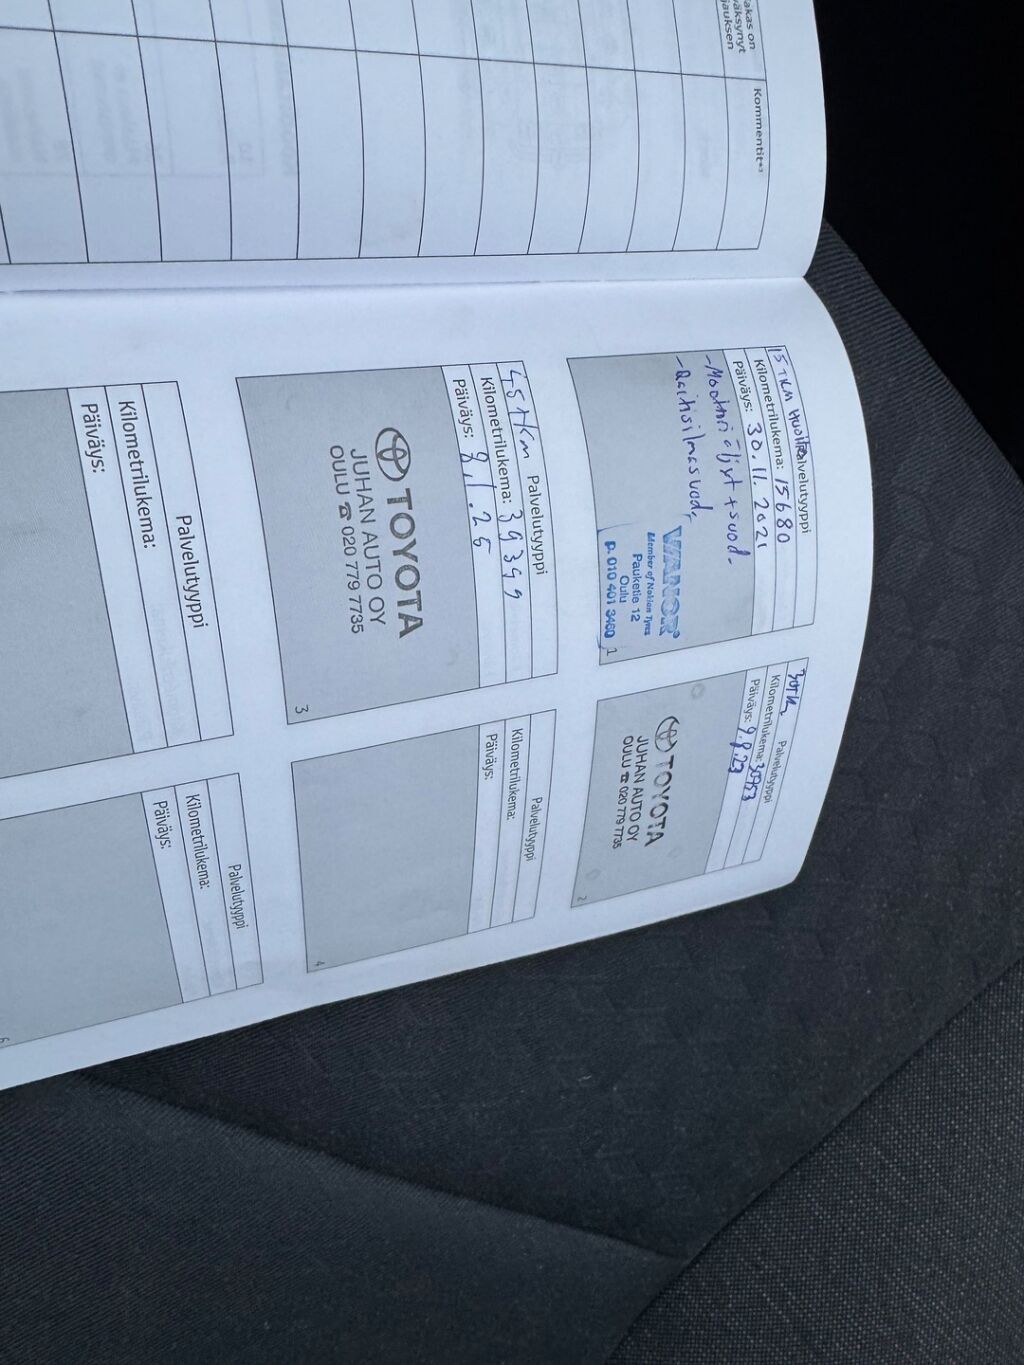 akas on
Kommentit*³
15 TKM HUOLTO
Palvelutyyppi
Kilometrilukema: 15680
Päiväys: 30.11.2021
-Moottoriöljyt + suod.
VIANOR
Member of Nokian Tyres
Pauketie 12
Oulu
p. 010 401 3460
1
30tkm Palvelutyyppi
Kilometrilukema: 30953
Päiväys: 9.8.23
TOYOTA
JUHAN AUTO OY
OULU ☎ 020 779 7735
2
45tkm Palvelutyyppi
Kilometrilukema: 39399
Päiväys: 8.1.25
TOYOTA
JUHAN AUTO OY
OULU ☎ 020 779 7735
3
Palvelutyyppi
Kilometrilukema:
Päiväys:
4
Palvelutyyppi
Kilometrilukema:
Päiväys:
Palvelutyyppi
Kilometrilukema:
Päiväys:
6